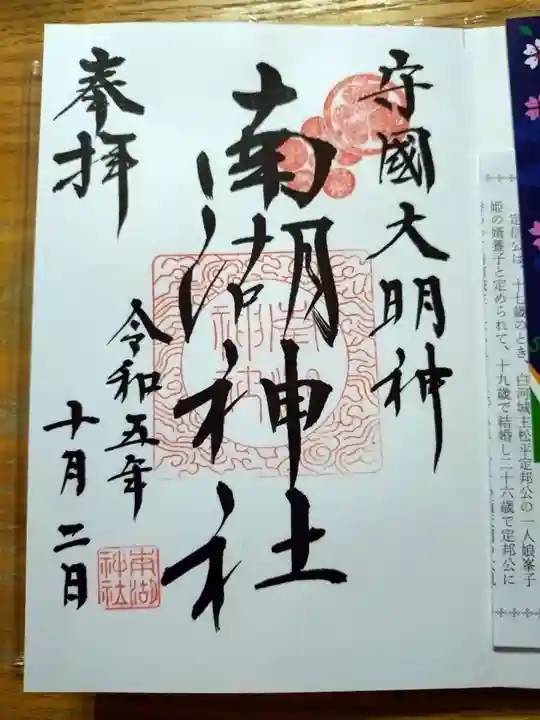 守國大明神
南湖神社
奉拝
令和五年
十月二日
南湖
神社
定信公は、十七歳のとき、白河城主松平定邦公の一人娘峯子
姫の婿養子と定められて、十九歳で結婚し二十六歳で定邦公に